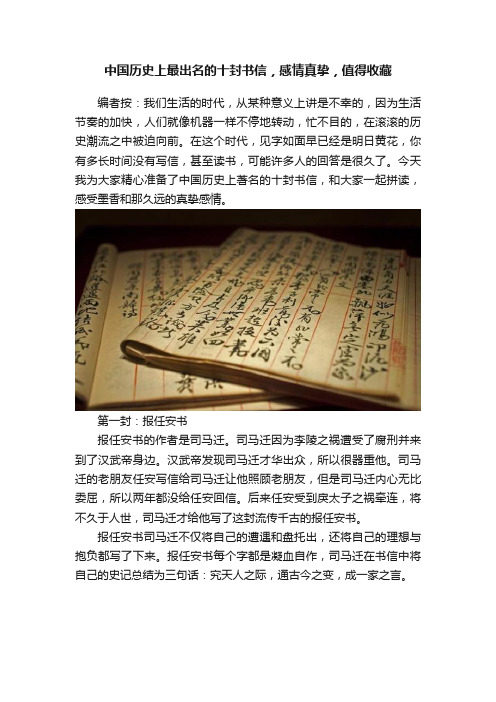 中国历史上最出名的十封书信，感情真挚，值得收藏
编者按：我们生活的时代，从某种意义上讲是不幸的，因为生活
节奏的加快，人们就像机器一样不停地转动，忙不目的，在滚滚的历
史潮流之中被迫向前。在这个时代，见字如面早已经是明日黄花，你
有多长时间没有写信，甚至读书，可能许多人的回答是很久了。今天
我为大家精心准备了中国历史上著名的十封书信，和大家一起拼读，
感受墨香和那久远的真挚感情。
第一封：报任安书
报任安书的作者是司马迁。司马迁因为李陵之祸遭受了腐刑并来
到了汉武帝身边。汉武帝发现司马迁才华出众，所以很器重他。司马
迁的老朋友任安写信给司马迁让他照顾老朋友，但是司马迁内心无比
委屈，所以两年都没给任安回信。后来任安受到戾太子之祸牵连，将
不久于人世，司马迁才给他写了这封流传千古的报任安书。
报任安书司马迁不仅将自己的遭遇和盘托出，还将自己的理想与
抱负都写了下来。报任安书每个字都是凝血自作，司马迁在书信中将
自己的史记总结为三句话：究天人之际，通古今之变，成一家之言。